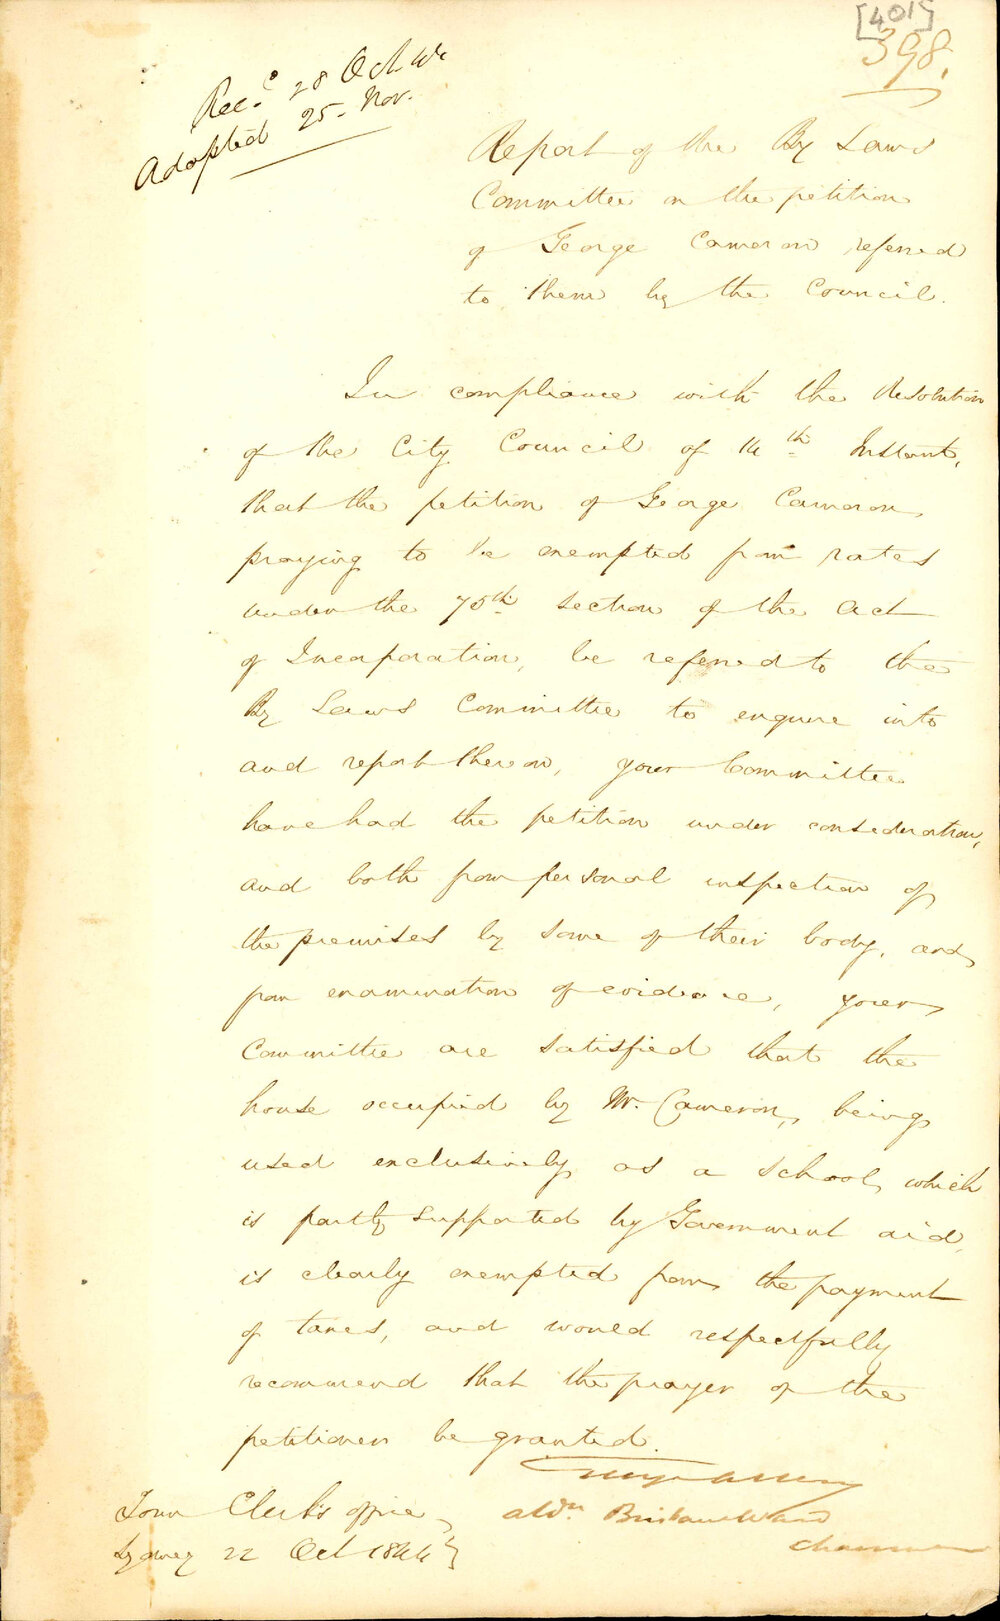 [401]
398.
Recd. 28 Oct 44
Adopted 25 Nov.
Report of the By Laws
Committee on the petition
of George Cameron referred
to them by the Council.
In compliance with the Resolution
of the City Council of 14th Instant,
that the petition of George Cameron,
praying to be exempted from rates
under the 75th section of the Act
of Incorporation, be referred to the
By Laws Committee to enquire into
and report thereon, your Committee
have had the petition under consideration,
and both from personal inspection of
the premises by some of their body, and
from examination of evidence, your
Committee are satisfied that the
house occupied by Mr. Cameron, being
used exclusively as a school, which
is partly supported by Government aid,
is clearly exempted from the payment
of taxes, and would respectfully
recommend that the prayer of the
petitioner be granted.
Aldn. Brisbane Ward
Chairman
Town Clerk's office
Sydney 22 Oct 1844